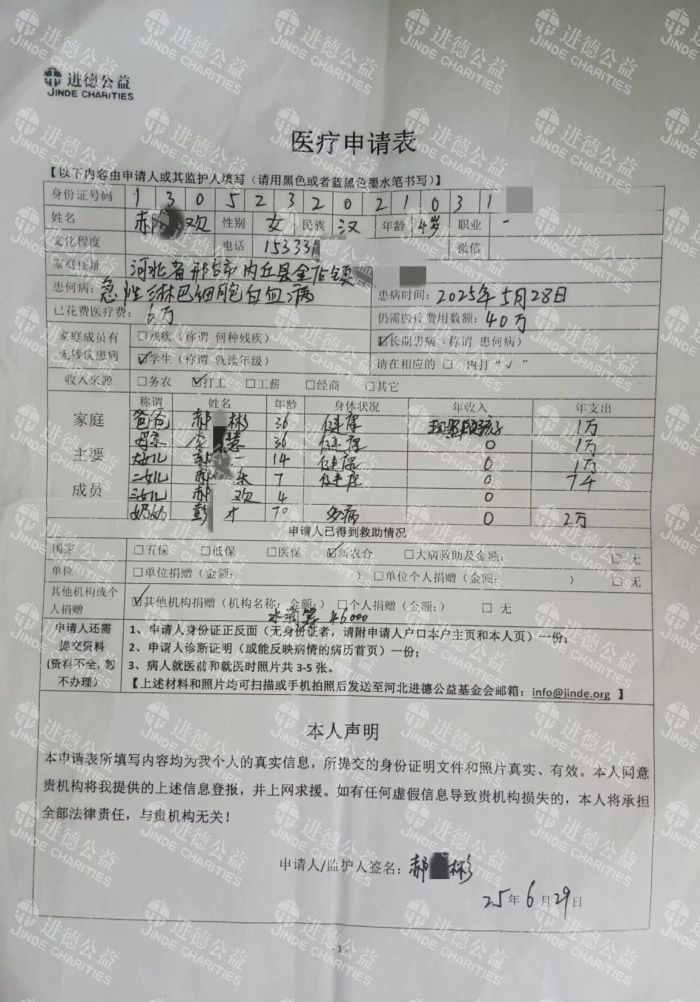 进德公益
JINDE CHARITIES
医疗申请表
【以下内容由申请人或其监护人填写（请用黑色或者蓝黑色墨水笔书写）】
身份证号码 1 3 0 5 2 3 2 0 2 1 0 3 1
姓名 郝 欢 性别 女 民族 汉 年龄 4岁 职业 -
文化程度 电话 15333 微信
家庭住址 河北省邢台市内丘县金店镇
患何病: 急性淋巴细胞白血病 患病时间: 2025年5月28日
已花费医疗费: 6万 仍需医疗费用数额: 40万
家庭成员有 □残疾（称谓 何种残疾） ☑长期患病（称谓 患何病）
无残疾患病 ☑学生（称谓 就读年级） 请在相应的 □ 内打"√"
收入来源 □务农 ☑打工 □工薪 □经商 □其它
称谓 姓名 年龄 身体状况 年收入 年支出
家庭 爸爸 郝 彬 36 健康 1万
母亲 李 慧 36 健康 0 1万
主要 大女儿 郝 一 14 健康 0 1万
二女儿 郝 乐 7 健康 0 7千
成员 三女儿 郝 欢 4 0
奶奶 彭 才 70 多病 0 2万
申请人已得到救助情况
国家 □五保 □低保 □医保 ☑新农合 □大病救助及金额: □ 无
单位 □单位捐赠（金额: ） □单位个人捐赠（金额: ） □ 无
其他机构或个人捐赠 ☑其他机构捐赠（机构名称: 金额:） □个人捐赠（金额:） □ 无
水滴筹 46000
申请人还需 1、申请人身份证正反面（无身份证者，请附申请人户口本户主页和本人页）一份;
提交资料 2、申请人诊断证明（或能反映病情的病历首页）一份;
(资料不全, 恕不办理) 3、病人就医前和就医时照片共 3-5 张。
【上述材料和照片均可扫描或手机拍照后发送至河北进德公益基金会邮箱: info@jinde.org 】
本人声明
本申请表所填写内容均为我个人的真实信息，所提交的身份证明文件和照片真实、有效。本人同意
贵机构将我提供的上述信息登报，并上网求援。如有任何虚假信息导致贵机构损失的，本人将承担
全部法律责任，与贵机构无关!
申请人/监护人签名: 郝 彬
25 年 6 月 29 日
- 1 -